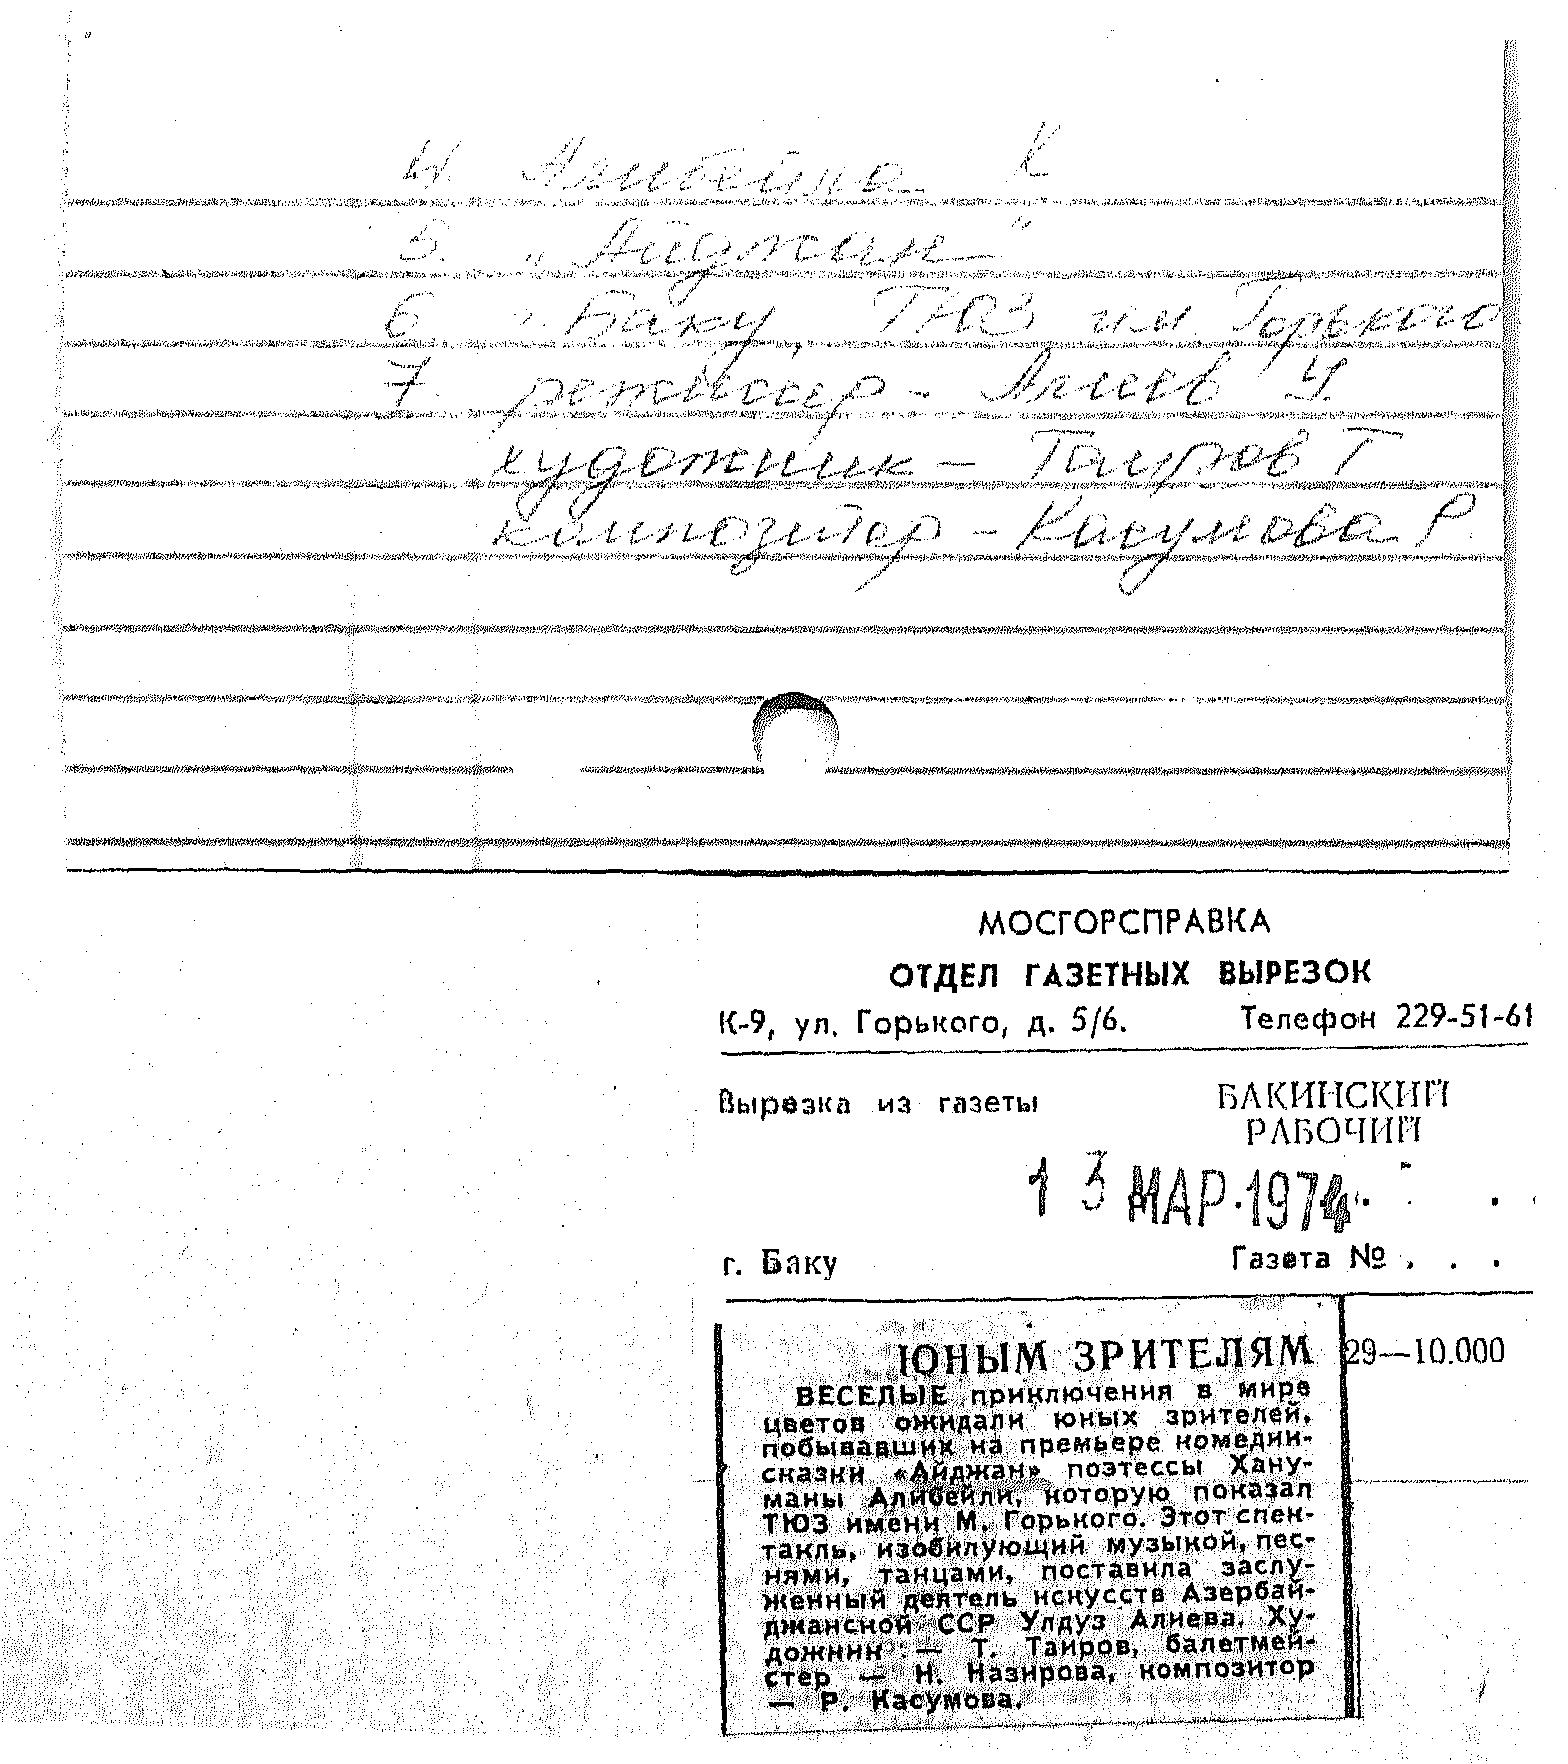 4. Алибейли Х
5. „Айджан"
6 г. Баку, ТЮЗ им. Горького
7. режиссер - Алиев У.
художник - Таиров Т
композитор - Касумова Р.
МОСГОРСПРАВКА
ОТДЕЛ ГАЗЕТНЫХ ВЫРЕЗОК
К-9, ул. Горького, д. 5/6. Телефон 229-51-61
Вырезка из газеты БАКИНСКИЙ
РАБОЧИЙ
13 МАР. 1974
г. Баку Газета № . . .
29—10.000
ЮНЫМ ЗРИТЕЛЯМ
ВЕСЕЛЫЕ приключения в мире
цветов ожидали юных зрителей,
побывавших на премьере комедии-
сказки «Айджан» поэтессы Хану-
маны Алибейли, которую показал
ТЮЗ имени М. Горького. Этот спек-
такль, изобилующий музыкой, пес-
нями, танцами, поставила заслу-
женный деятель искусств Азербай-
джанской ССР Улдуз Алиева. Ху-
дожник — Т. Таиров, балетмей-
стер — Н. Назирова, композитор
— Р. Касумова.